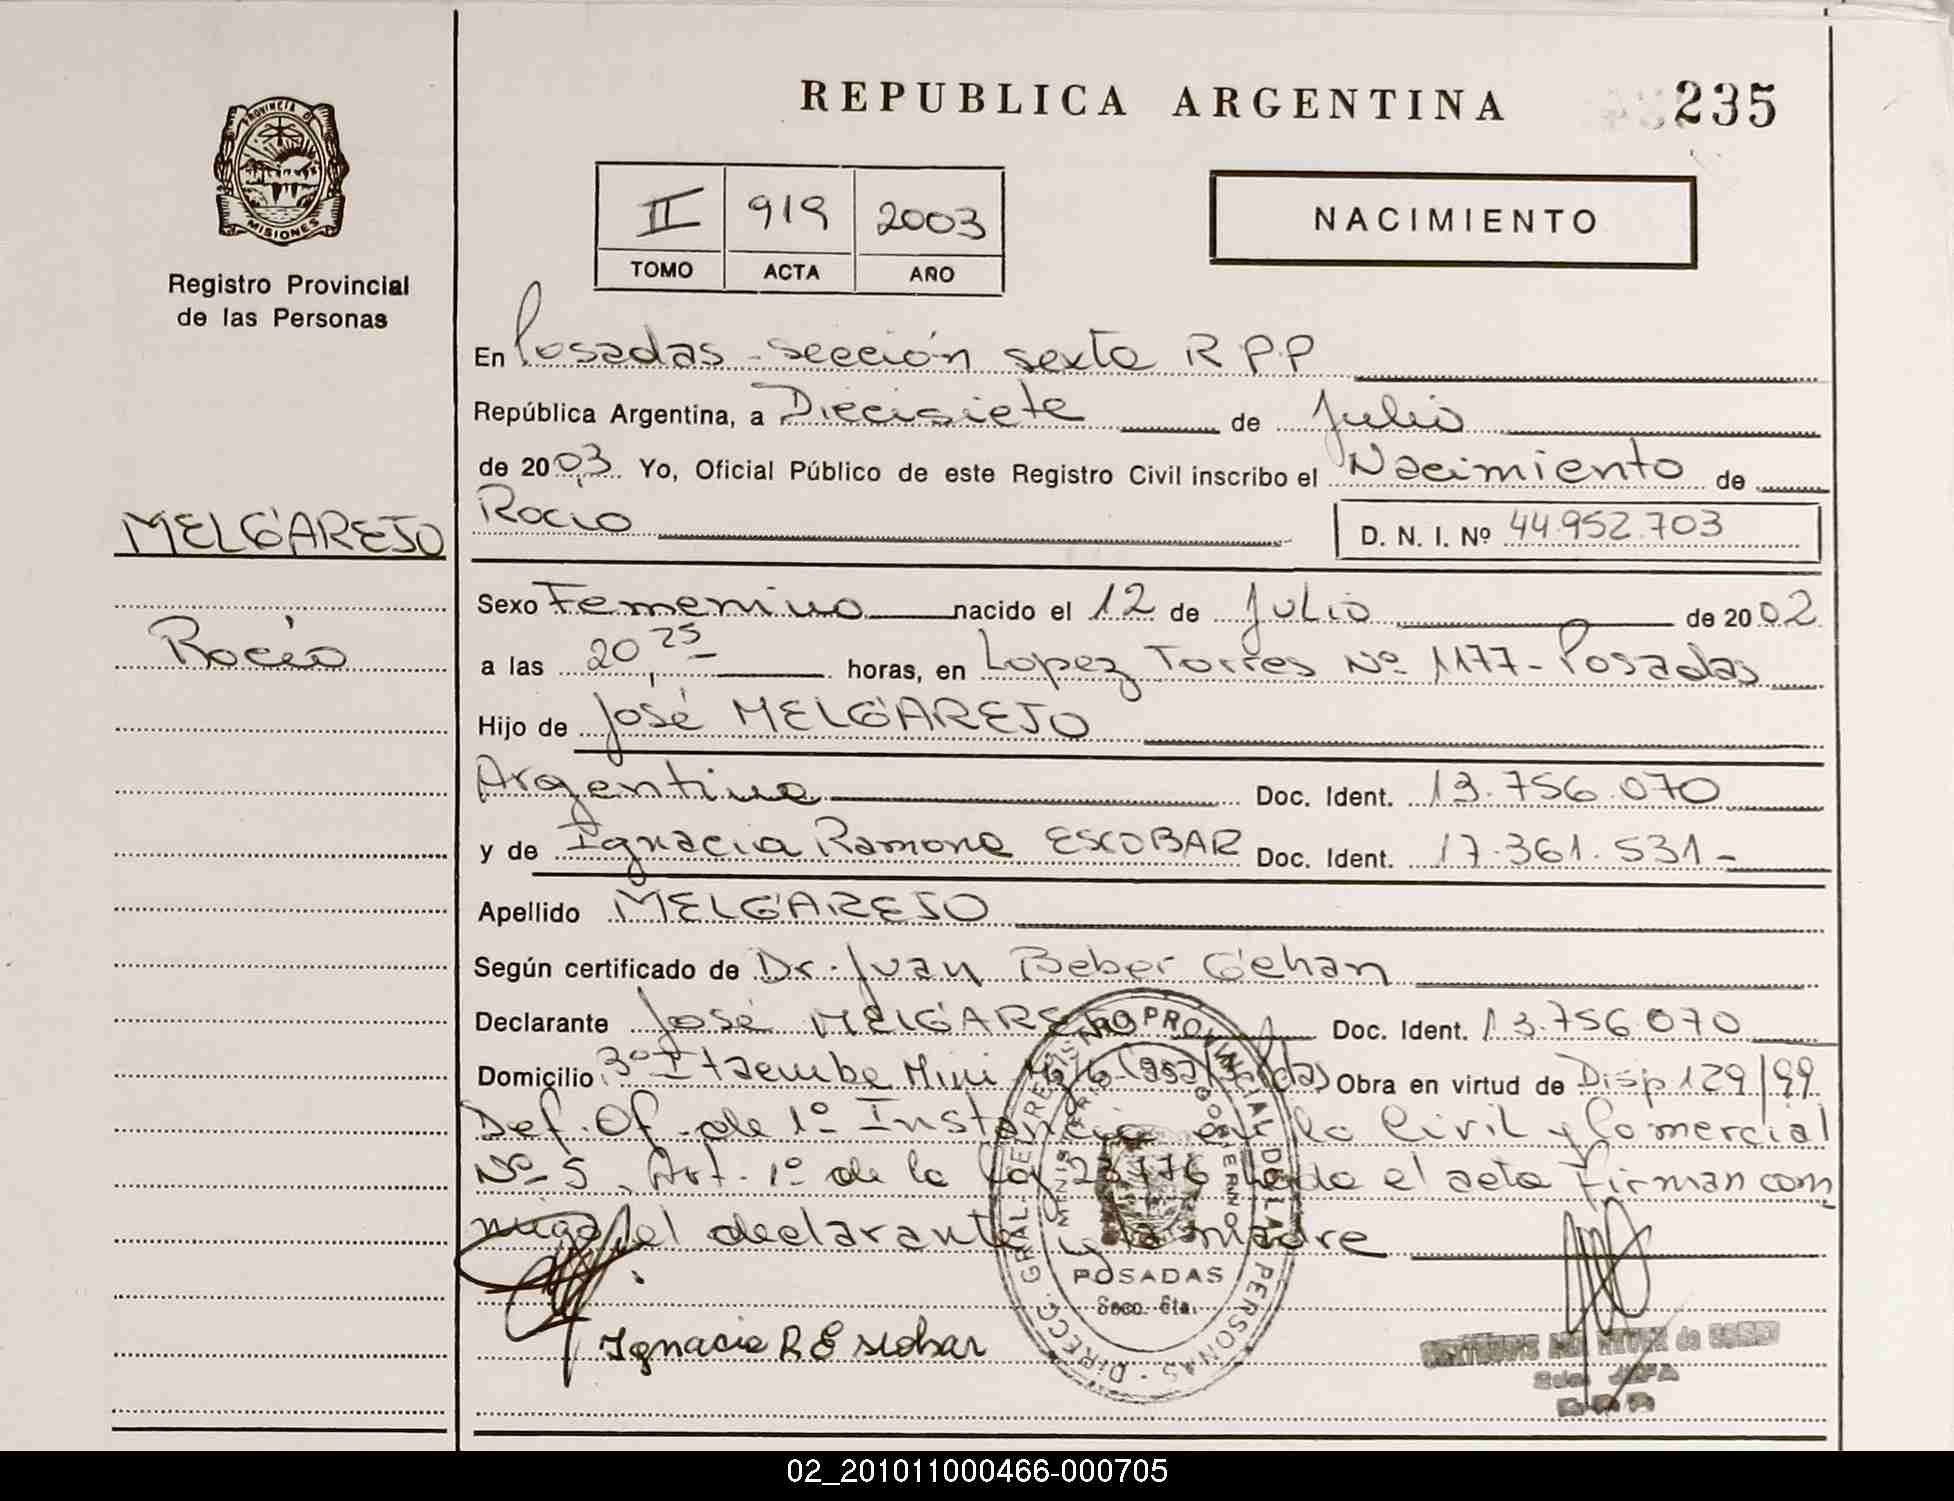 REPUBLICA ARGENTINA
235
PROVINCIA DE
MISIONES
Registro Provincial
de las Personas
II 919 2003
TOMO ACTA AÑO
NACIMIENTO
En Posadas - sección sexta R P P
República Argentina, a Diecisiete de Julio
de 2003. Yo, Oficial Público de este Registro Civil inscribo el Nacimiento de
MELGAREJO
Rocio
D. N. I. Nº 44.952.703
Sexo Femenino nacido el 12 de Julio de 2002
Rocío
a las 20,25 horas, en Lopez Torres Nº 1177 - Posadas
Hijo de José MELGAREJO
Argentina Doc. Ident. 13.756.070
y de Ignacia Ramona ESCOBAR Doc. Ident. 17.361.531-
Apellido MELGAREJO
Según certificado de Dr. Juan Beber Gehan
Declarante José MELGAREJO Doc. Ident. 13.756.070
Domicilio 3º Itaembe Mini Obra en virtud de Disp 129/99
Def. Of. de 1º Instancia en lo Civil y Comercial
Nº 5, Art. 1º de la el acta firman con
migo el declarante y la madre
Ignacia R Escobar
DIRECC. GRAL. DE REGISTRO PROVINCIAL DE LAS PERSONAS
POSADAS
Secc. 6ta.
02_201011000466-000705